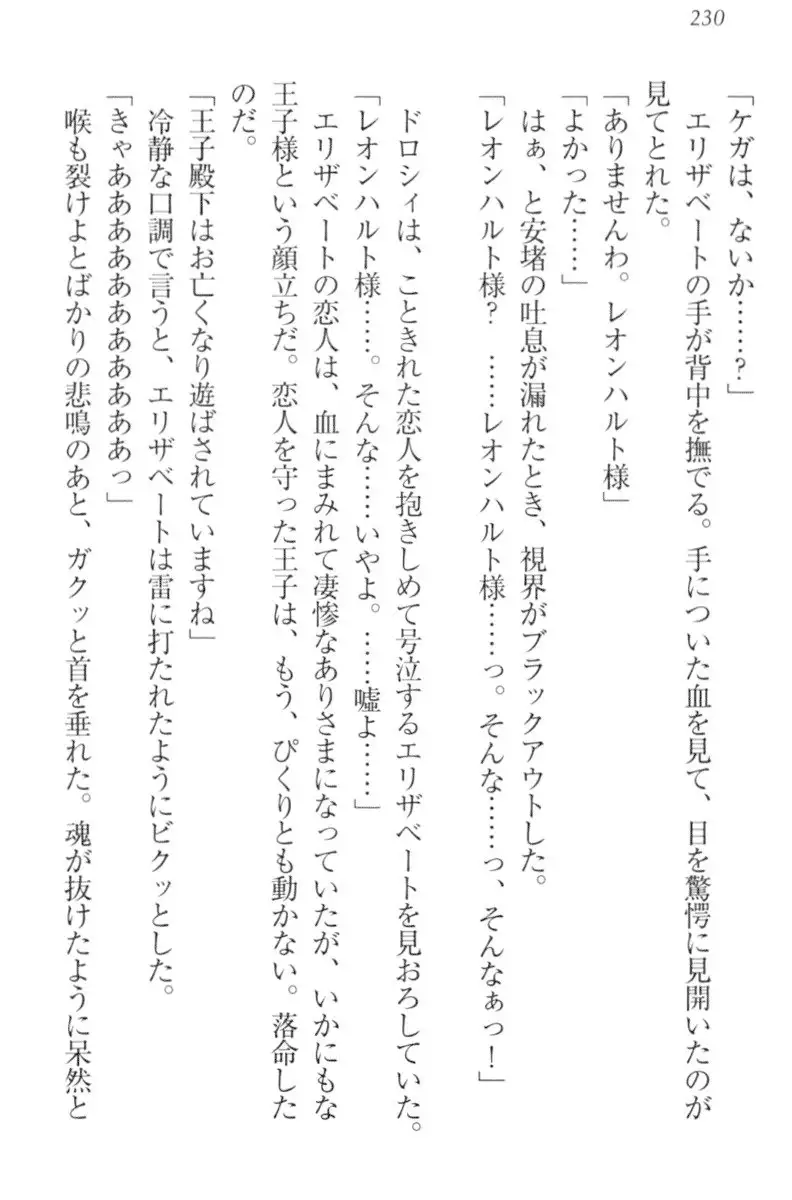 230
「ケガは、ないか……?」
エリザベートの手が背中を撫でる。手についた血を見て、目を驚愕に見開いたのが
見てとれた。
「ありませんわ。レオンハルト様」
「よかった……」
はぁ、と安堵の吐息が漏れたとき、視界がブラックアウトした。
「レオンハルト様?　……レオンハルト様……っ。そんな……っ、そんなぁっ!」
ドロシィは、こときれた恋人を抱きしめて号泣するエリザベートを見おろしていた。
「レオンハルト様……。そんな……いやよ。……嘘よ……」
エリザベートの恋人は、血にまみれて凄惨なありさまになっていたが、いかにもな
王子様という顔立ちだ。恋人を守った王子は、もう、ぴくりとも動かない。落命した
のだ。
「王子殿下はお亡くなり遊ばされていますね」
冷静な口調で言うと、エリザベートは雷に打たれたようにビクッとした。
「きゃああああああああああああっ」
喉も裂けよとばかりの悲鳴のあと、ガクッと首を垂れた。魂が抜けたように呆然と